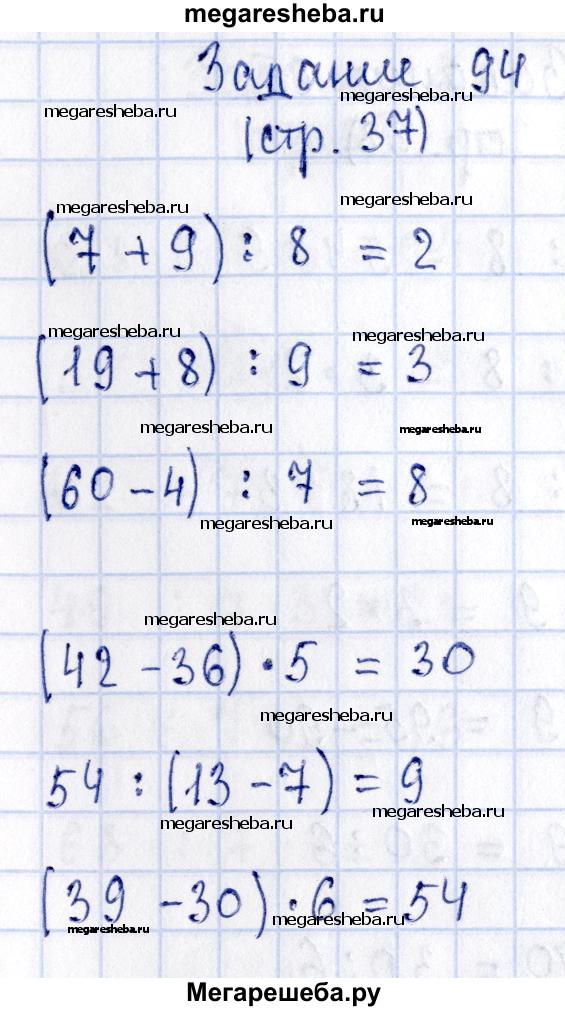 megaresheba.ru
Задание 94
megaresheba.ru megaresheba.ru
(стр. 37)
megaresheba.ru megaresheba.ru
(7 + 9) : 8 = 2
megaresheba.ru megaresheba.ru
(19 + 8) : 9 = 3
megaresheba.ru megaresheba.ru
(60 - 4) : 7 = 8
megaresheba.ru megaresheba.ru
megaresheba.ru
(42 - 36) · 5 = 30
megaresheba.ru
54 : (13 - 7) = 9
megaresheba.ru megaresheba.ru
(39 - 30) · 6 = 54
megaresheba.ru megaresheba.ru
Мегарешеба.ру